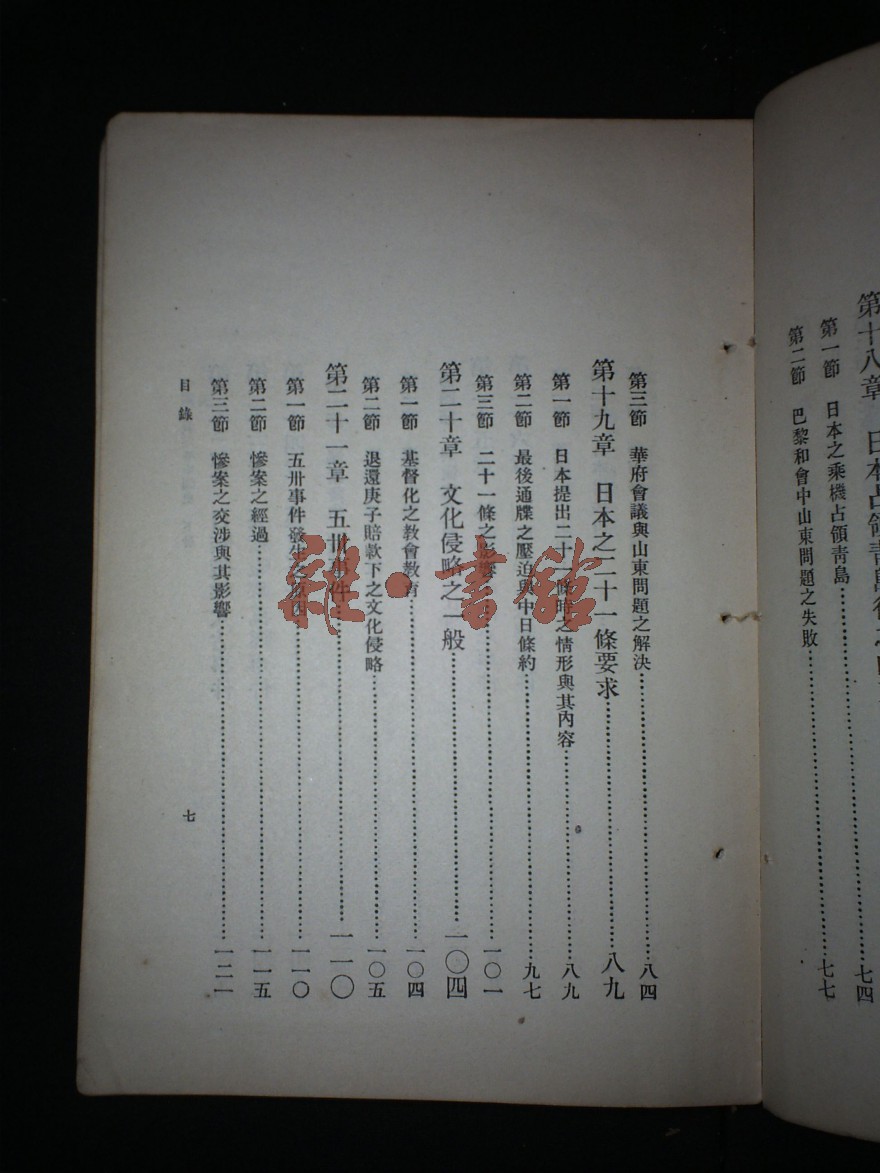 第十八章 日本占領靑島後之
第一節 日本之乘機占領靑島……七四
第二節 巴黎和會中山東問題之失敗……七七
第三節 華府會議與山東問題之解決……八四
第十九章 日本之二十一條要求……八九
第一節 日本提出二十一條時之情形與其內容……八九
第二節 最後通牒之壓迫與中日條約……九七
第三節 二十一條之影響……一〇一
第二十章 文化侵略之一般……一〇四
第一節 基督化之敎會敎育……一〇四
第二節 退還庚子賠款下之文化侵略……一〇五
第二十一章 五卅事件……一一〇
第一節 五卅事件發生之原因……一一〇
第二節 慘案之經過……一一五
第三節 慘案之交涉與其影響……一二一
目錄
七
雜·書館